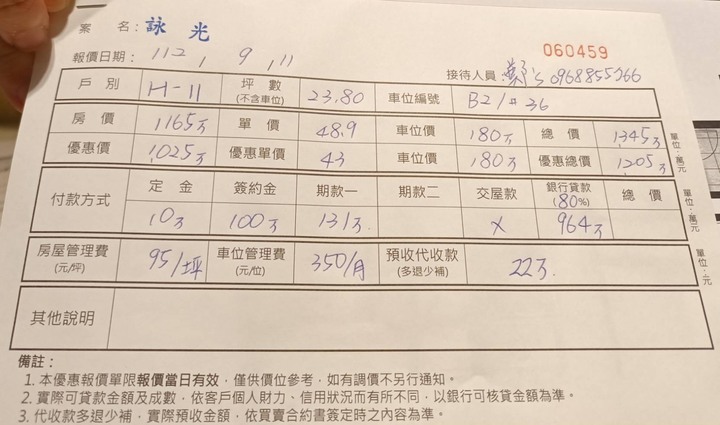 案 名：詠 光
報價日期：112，9，11
060459
接待人員：
戶 別 H-11 坪 數 (不含車位) 23.80 車位編號 B2/#36
房 價 1165万 單 價 48.9 車位價 180万 總 價 1345万
優惠價 1025万 優惠單價 43 車位價 180万 優惠總價 1205万
單位：萬元
付款方式 定 金 簽約金 期款一 期款二 交屋款 銀行貸款 (80%) 總 價
10万 100万 131万 X 964万
單位：萬元
房屋管理費 (元/坪) 95/坪 車位管理費 (元/位) 350/月 預收代收款 (多退少補) 22万.
單位：元
其他說明
備註：
1. 本優惠報價單限報價當日有效，僅供價位參考，如有調價不另行通知。
2. 實際可貸款金額及成數，依客戶個人財力、信用狀況而有所不同，以銀行可核貸金額為準。
3. 代收款多退少補，實際預收金額，依買賣合約書簽定時之內容為準。